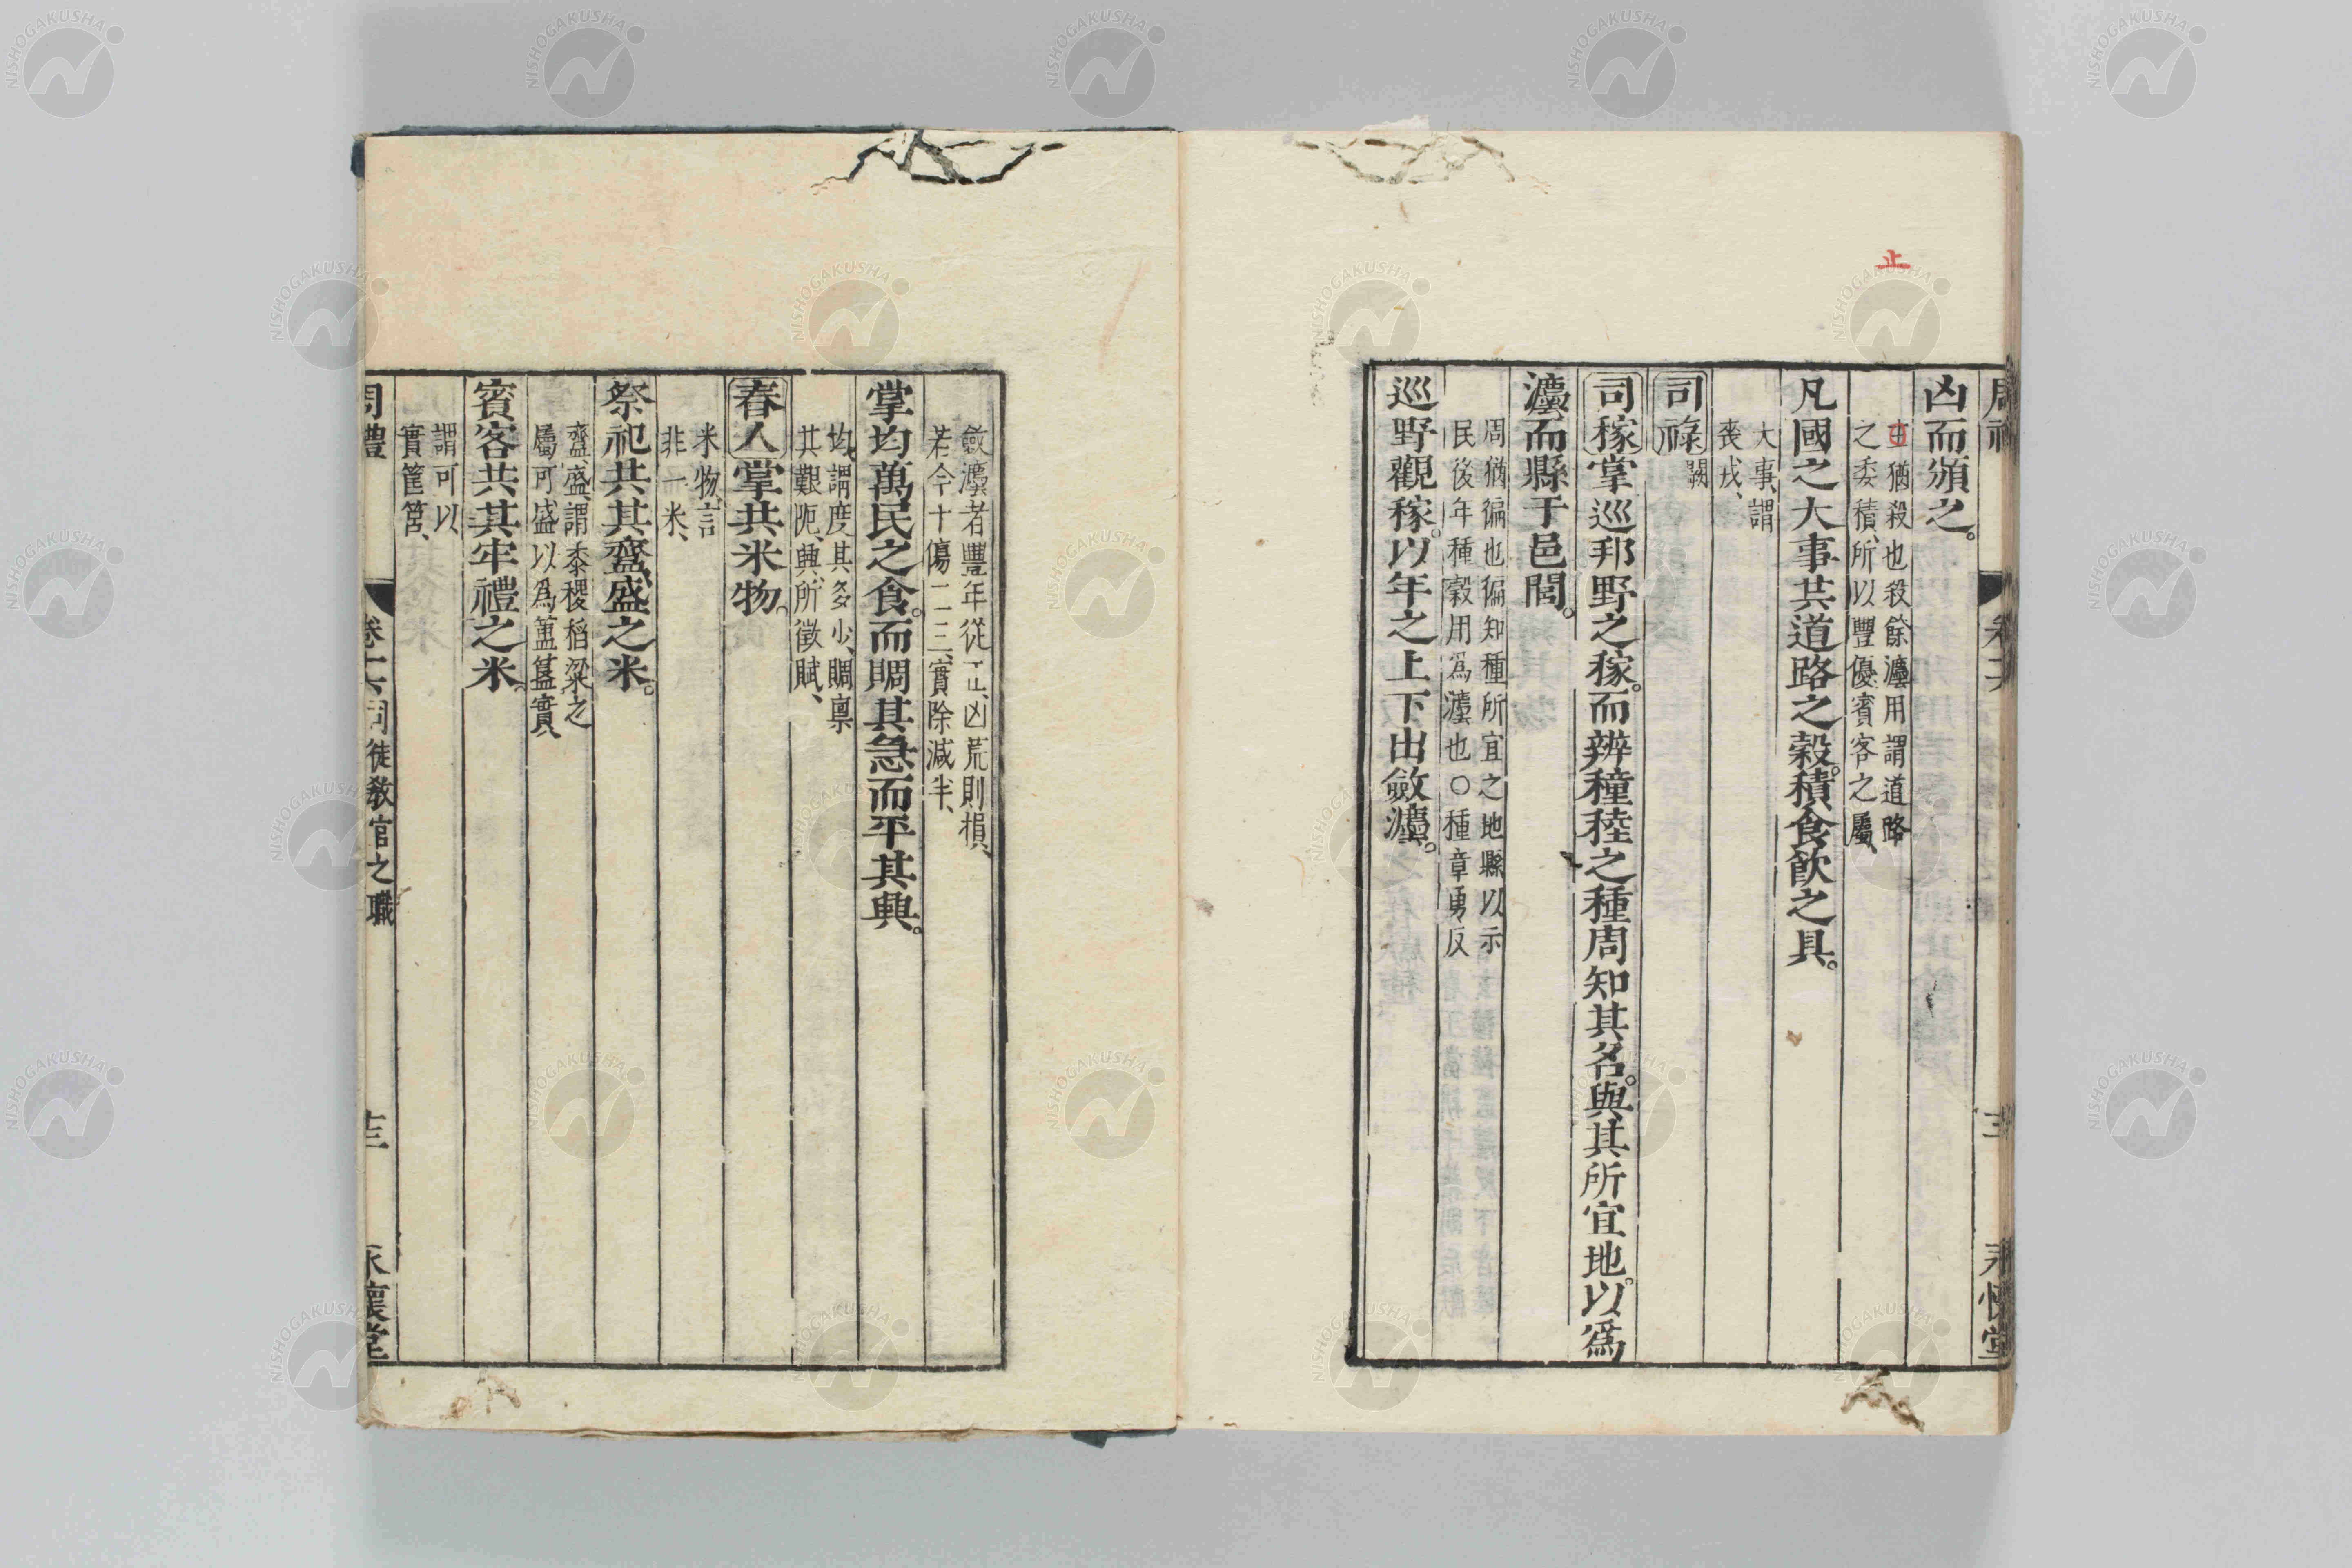 止
凶而頒之。
猶殺也殺餘灋用謂道路
之委積、所以豐優賓客之屬、
凡國之大事共道路之穀。積食飲之具。
大事、謂
喪戎、
司祿闕
司稼掌巡邦野之稼。而辨穜稑之種周知其名。與其所宜地。以爲
灋而縣于邑閭。
周猶徧也徧知種所宜之地縣以示
民後年種穀用爲灋也○種章勇反
巡野觀稼。以年之上下出斂灋。
永懷堂
斂灋者豐年從正、凶荒則損、
若今十傷二三、實除減半、
掌均萬民之食。而賙其急而平其興。
均、謂度其多少、賙稟
其艱阨、興、所徵賦、
舂人掌共米物。
米物、言
非一米、
祭祀共其齍盛之米。
齍盛、謂黍稷稻粱之
屬可盛以爲簠簋實、
賓客共其牢禮之米。
謂可以
實筐筥、
周禮
卷十六司徒敎官之職
十三
永懷堂
NISHOGAKUSHA